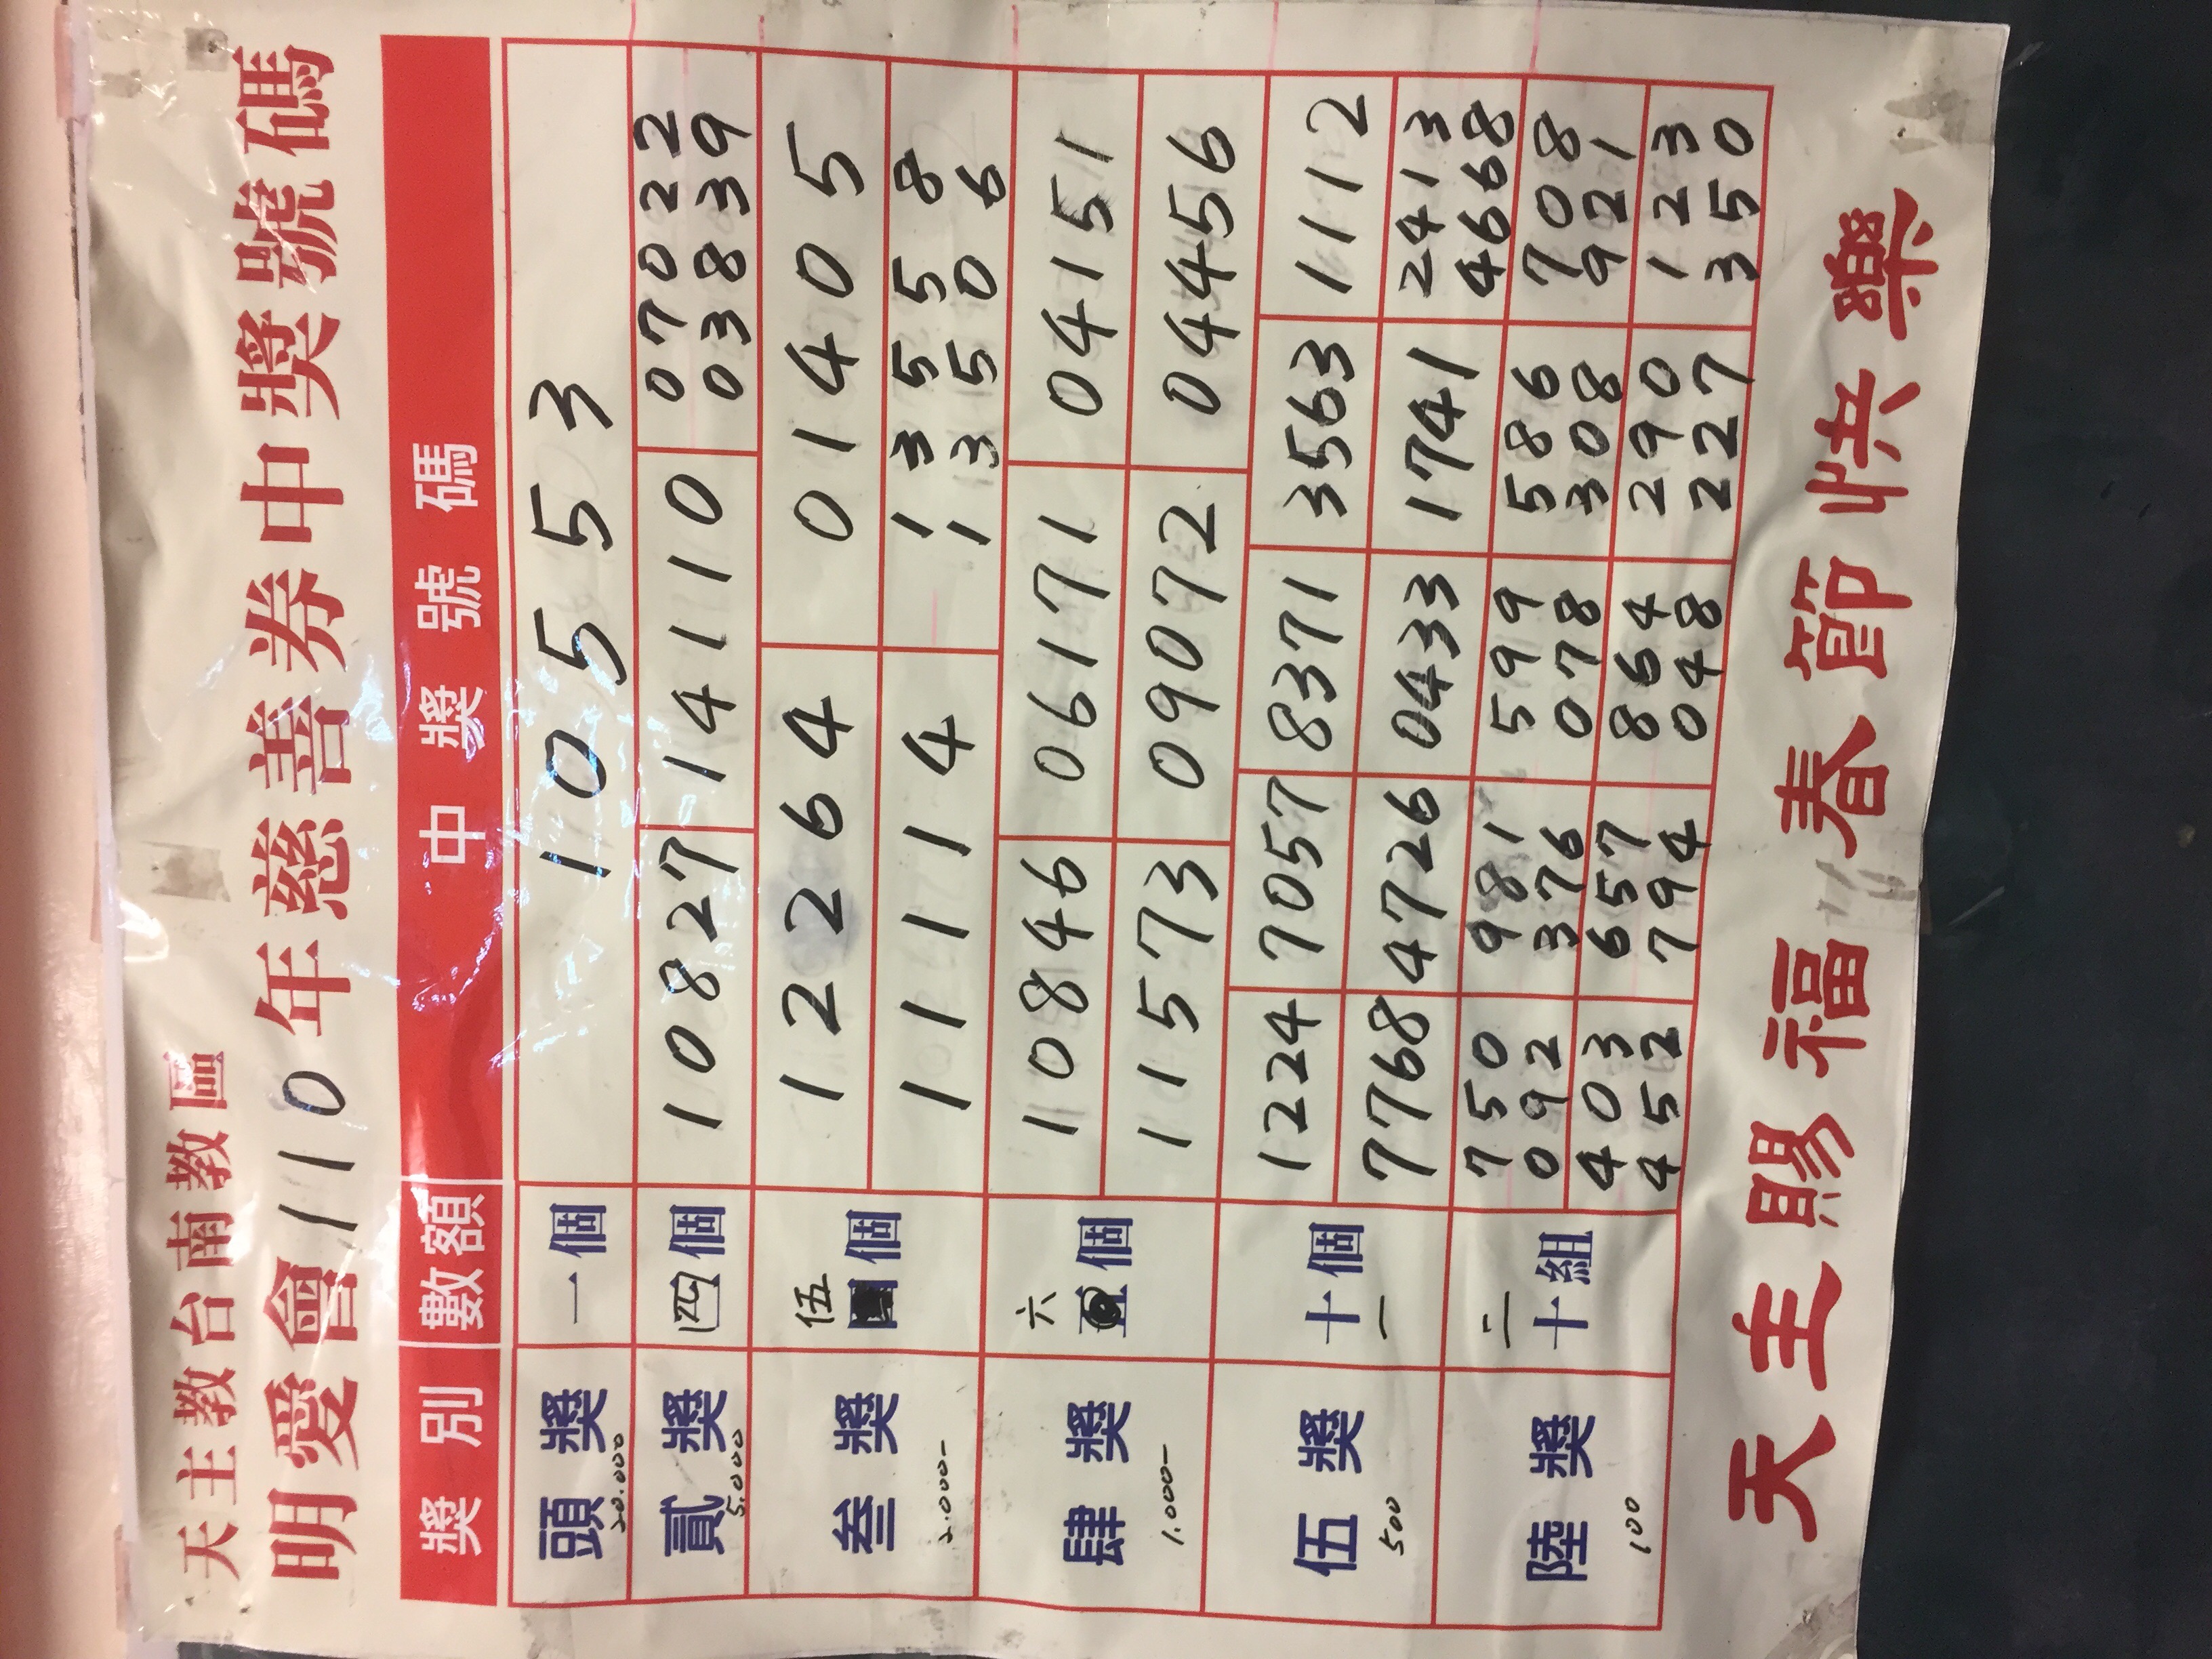 天主教台南教區
明愛會110年慈善券中獎號碼
獎別 數額 中獎號碼
頭獎 20.000 一個 10553
貳獎 5.000 四個 10827 14110 07022
03839
叁獎 2.000- 伍個 12264 01405
11114 13558
13506
肆獎 1.000- 六個 10846 06171 04151
11573 09072 04456
伍獎 500 十一個 1224 7057 8371 3563 1112
7768 4726 0433 1741 2413
4668
陸獎 100 二十組 750 981 599 586 708
092 376 078 308 921
403 657 864 290 123
452 794 048 227 350
天主賜福 春節快樂